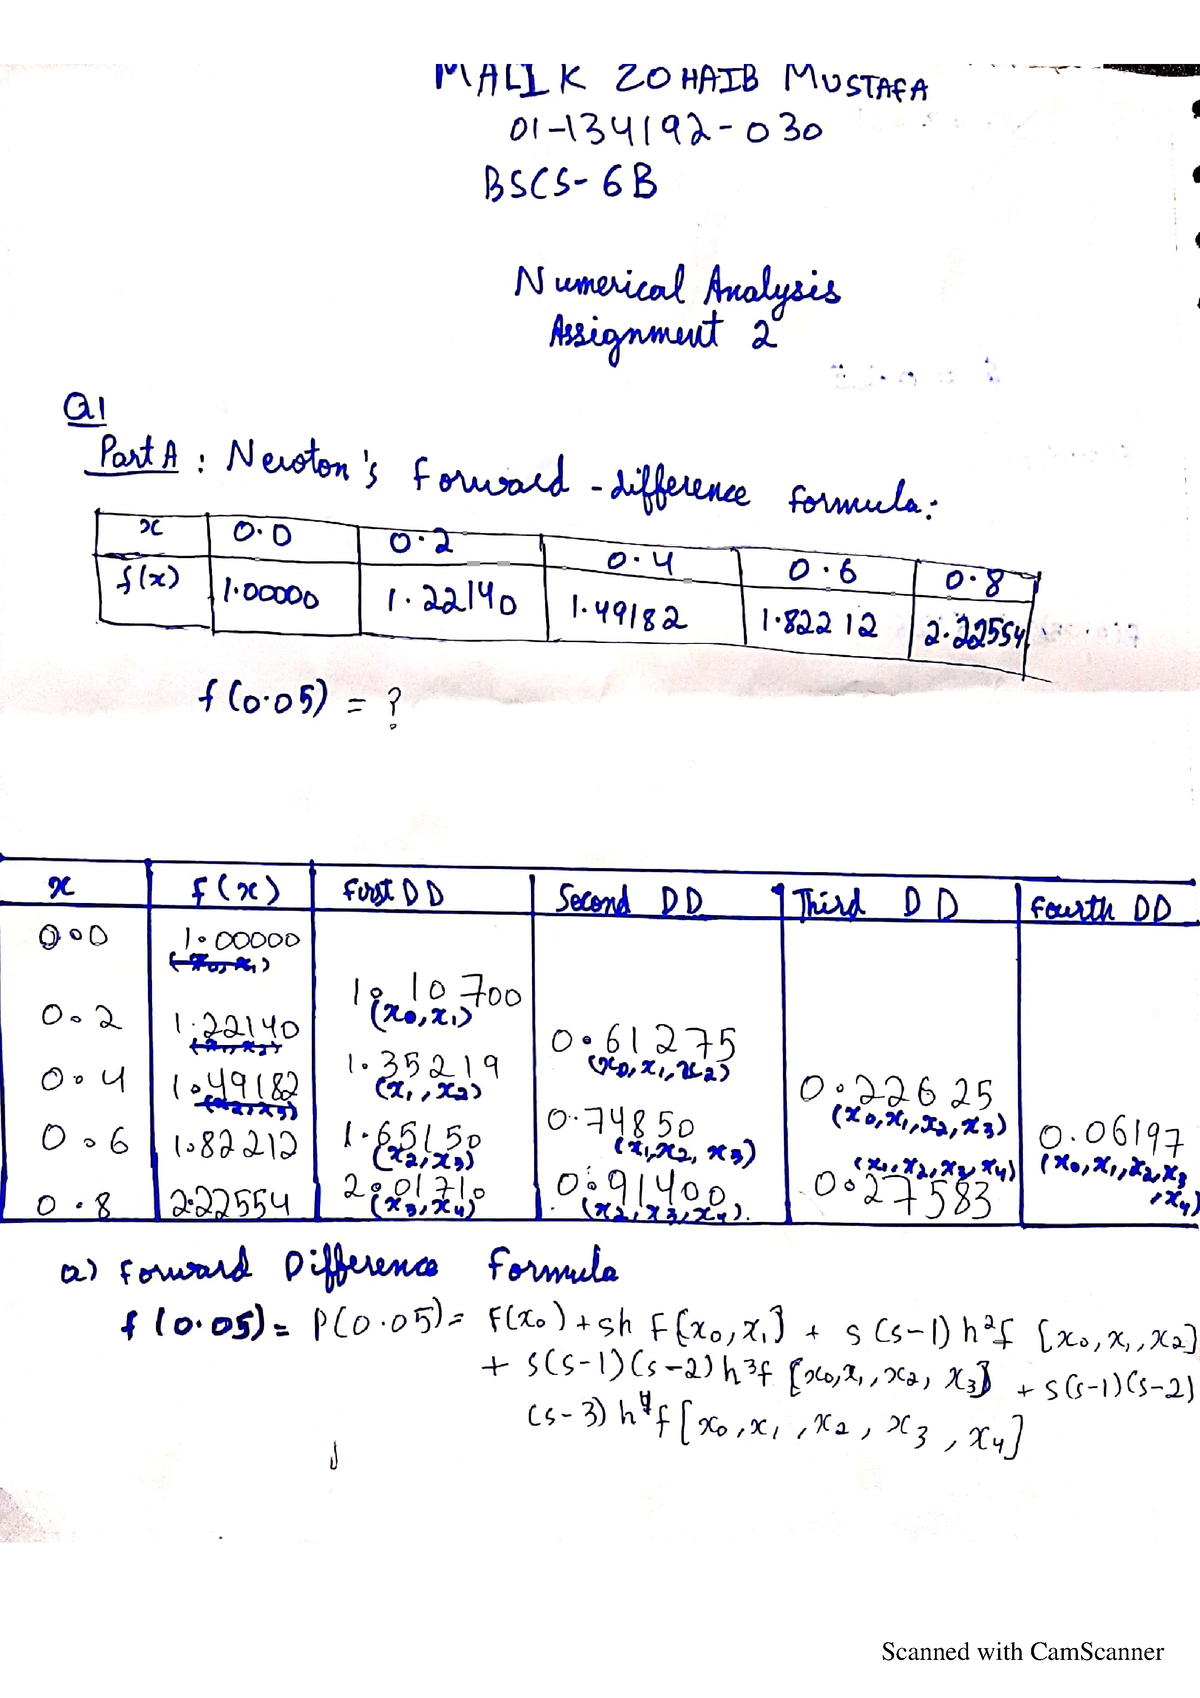 MALIK ZOHAIB MUSTAFA
01-134192-030
BSCS-6B
Numerical Analysis
Assignment 2
Q1
Part A : Newton's forward-difference formula:
x 0.0 0.2 0.4 0.6 0.8
f(x) 1.00000 1.22140 1.49182 1.82212 2.22554
f(0.05) = ?
x f(x) First DD Second DD Third DD Fourth DD
0.0 1.00000
(x0, x1)
1.10700
(x0, x1)
0.2 1.22140
0.61275
(x0, x1, x2)
1.35219
(x1, x2)
0.4 1.49182
(x2, x3)
0.22625
(x0, x1, x2, x3)
0.74850
(x1, x2, x3)
0.06197
(x0, x1, x2, x3, x4)
0.6 1.82212 1.65150
(x2, x3)
(x1, x2, x3, x4)
0.27583
0.8 2.22554 2.01710
(x3, x4)
0.91400
(x2, x3, x4).
a) Forward Difference Formula
f(0.05) = P(0.05) = F(x0) + sh F[x0, x1] + s(s-1)h²f [x0, x1, x2]
+ s(s-1)(s-2)h³f [x0, x1, x2, x3] + s(s-1)(s-2)
(s-3) h⁴f [x0, x1, x2, x3, x4]
Scanned with CamScanner